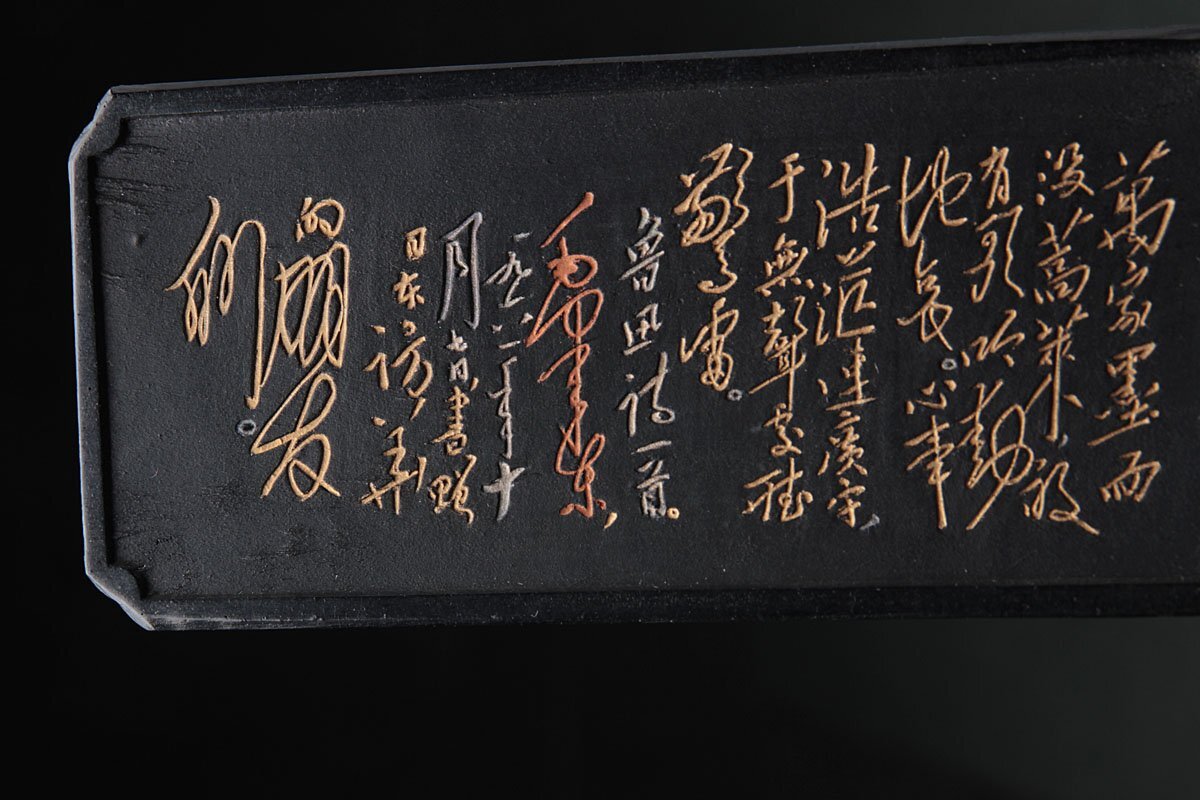 萬家墨面
没蒿萊,敢
有歌吟動
地哀。心事
浩茫連廣宇,
于無聲處聽
驚雷。
魯迅詩一首。
毛澤東,
一九六一年十
月七日書贈
日本訪華
的朋友
們。